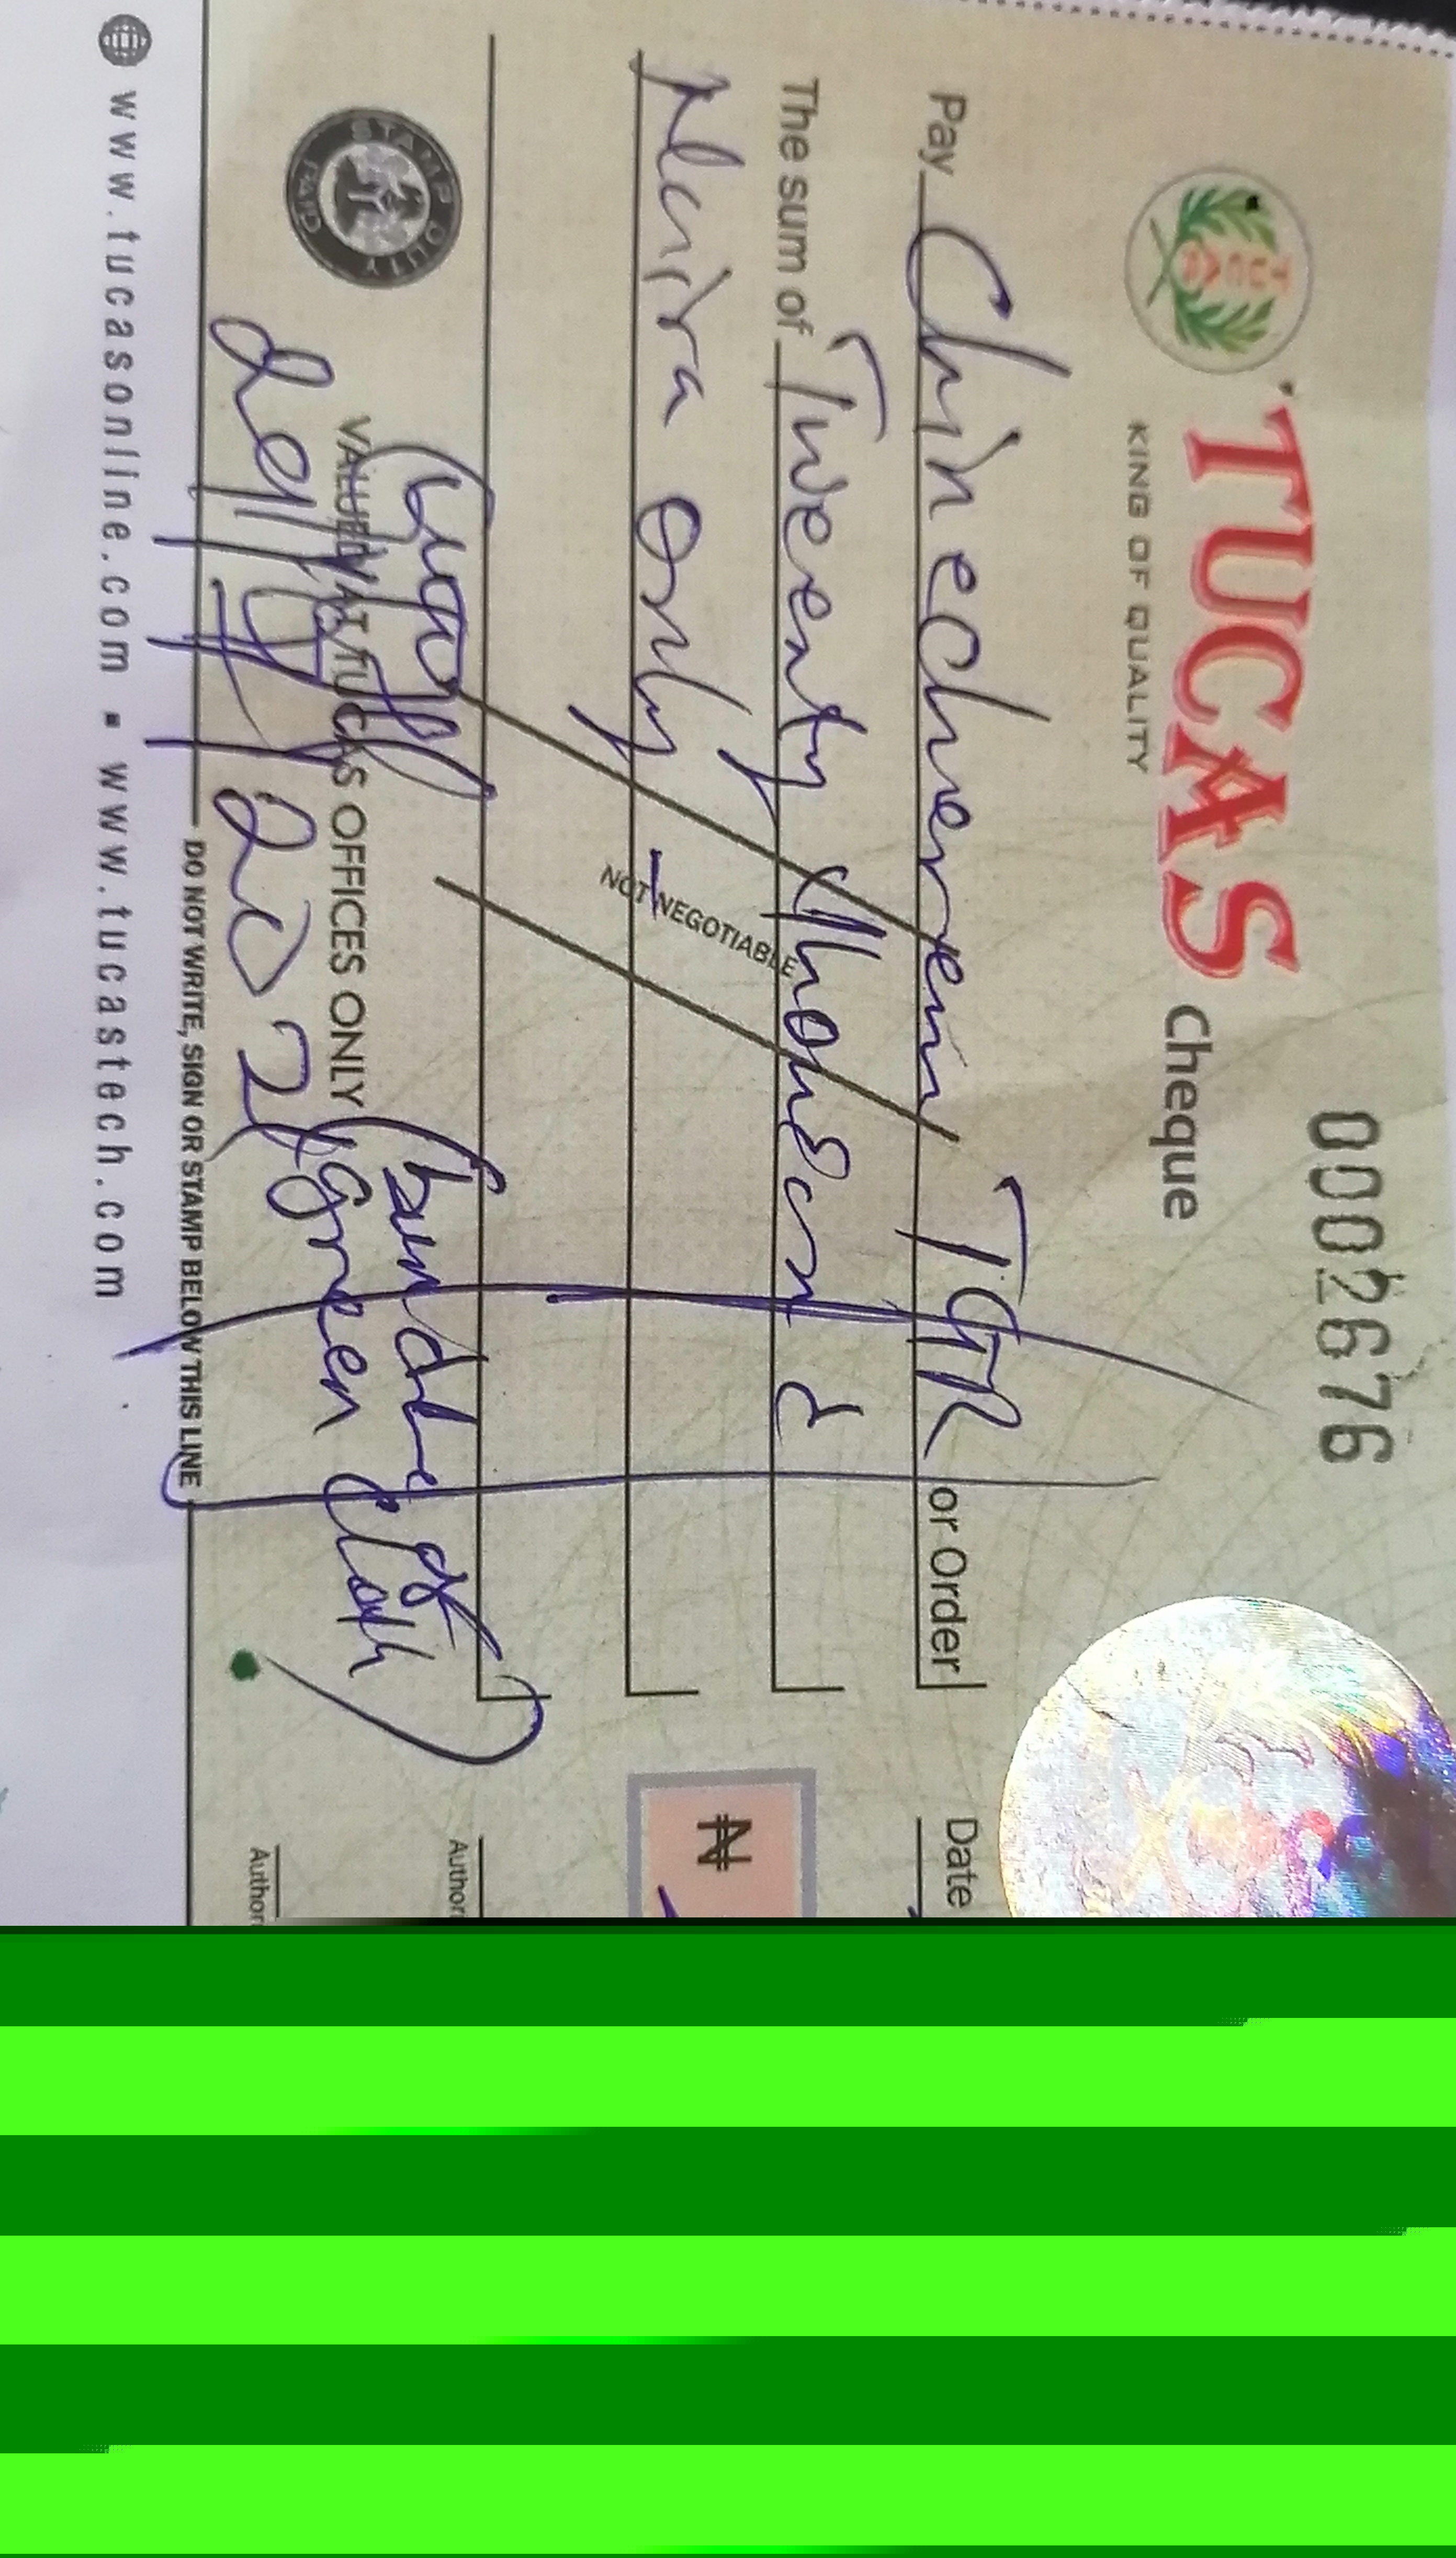 0002676
TUCAS Cheque
KING OF QUALITY
Pay Chinecherem TGR or Order
Date
The sum of Twenty thousand
Naira only
₦
NOT NEGOTIABLE
STAMP DUTY PAID
VALUED AT TUCAS OFFICES ONLY
(bundle of
green cloth)
Author
Author
DO NOT WRITE, SIGN OR STAMP BELOW THIS LINE
www.tucasonline.com ▪ www.tucastech.com